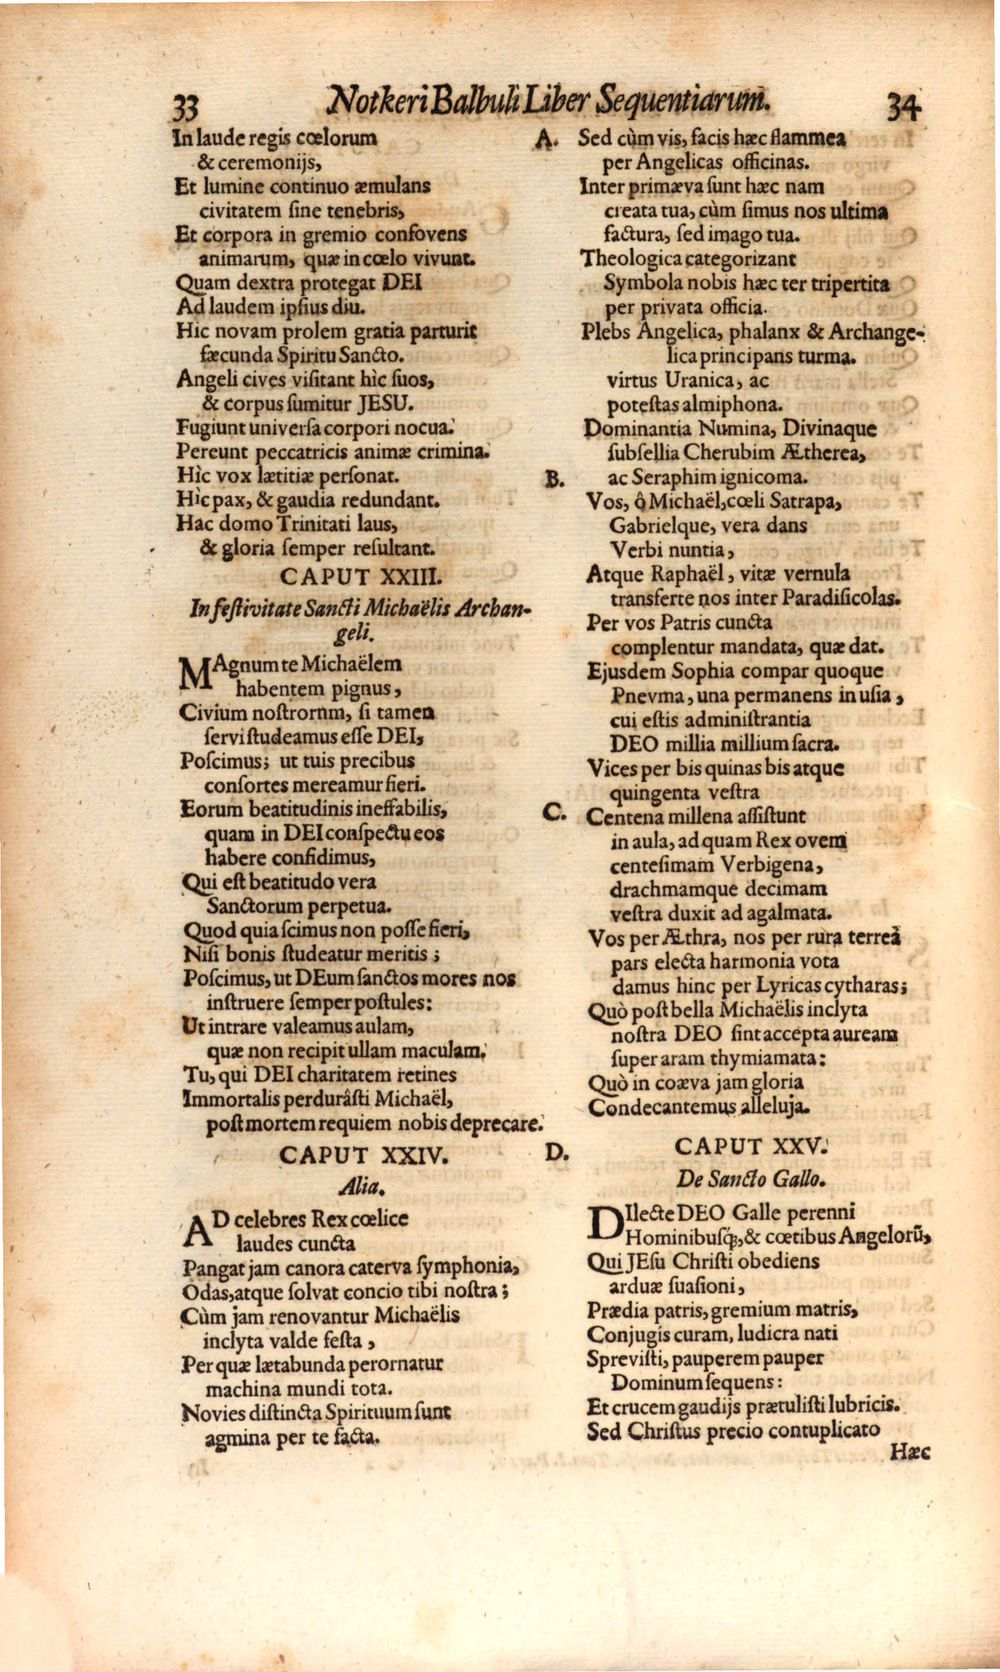 33 Notkeri Balbuli Liber Sequentiarum. 34
In laude regis cœlorum
& ceremonijs,
Et lumine continuo æmulans
civitatem ſine tenebris,
Et corpora in gremio confovens
animarum, quæ in cœlo vivunt.
Quam dextra protegat DEI
Ad laudem ipſius diu.
Hic novam prolem gratia parturit
fæcunda Spiritu Sancto.
Angeli cives viſitant hìc ſuos,
& corpus ſumitur JESU.
Fugiunt univerſa corpori nocua.
Pereunt peccatricis animæ crimina.
Hìc vox lætitiæ perſonat.
Hic pax, & gaudia redundant.
Hac domo Trinitati laus,
& gloria ſemper reſultant.
CAPUT XXIII.
In feſtivitate Sancti Michaëlis Archan-
geli.
MAgnum te Michaëlem
habentem pignus,
Civium noſtrorum, ſi tamen
ſervi ſtudeamus eſſe DEI,
Poſcimus; ut tuis precibus
conſortes mereamur fieri.
Eorum beatitudinis ineffabilis,
quam in DEI conſpectu eos
habere confidimus,
Qui eſt beatitudo vera
Sanctorum perpetua.
Quod quia ſcimus non poſſe fieri,
Niſi bonis ſtudeatur meritis;
Poſcimus, ut DEum ſanctos mores nos
inſtruere ſemper poſtules:
Ut intrare valeamus aulam,
quæ non recipit ullam maculam.
Tu, qui DEI charitatem retines
Immortalis perdurâſti Michaël,
poſt mortem requiem nobis deprecare.
CAPUT XXIV.
Alia.
AD celebres Rex cœlice
laudes cuncta
Pangat jam canora caterva ſymphonia,
Odas, atque ſolvat concio tibi noſtra;
Cùm jam renovantur Michaëlis
inclyta valde feſta,
Per quæ lætabunda perornatur
machina mundi tota.
Novies diſtincta Spirituum ſunt
agmina per te facta.
A. Sed cùm vis, facis hæc flammea
per Angelicas officinas.
Inter primæva ſunt hæc nam
creata tua, cùm ſimus nos ultima
factura, ſed imago tua.
Theologica categorizant
Symbola nobis hæc ter tripertita
per privata officia.
Plebs Angelica, phalanx & Archange-
lica principans turma.
virtus Uranica, ac
poteſtas almiphona.
Dominantia Numina, Divinaque
ſubſellia Cherubim Ætherea,
B. ac Seraphim ignicoma.
Vos, ô Michaël, cœli Satrapa,
Gabrielque, vera dans
Verbi nuntia,
Atque Raphaël, vitæ vernula
transferte nos inter Paradiſicolas.
Per vos Patris cuncta
complentur mandata, quæ dat.
Ejusdem Sophia compar quoque
Pnevma, una permanens in uſia,
cui eſtis adminiſtrantia
DEO millia millium ſacra.
Vices per bis quinas bis atque
quingenta veſtra
C. Centena millena aſſiſtunt
in aula, ad quam Rex ovem
centeſimam Verbigena,
drachmamque decimam
veſtra duxit ad agalmata.
Vos per Æthra, nos per rura terreâ
pars electa harmonia vota
damus hinc per Lyricas cytharas;
Quò poſt bella Michaëlis inclyta
noſtra DEO ſint accepta auream
ſuper aram thymiamata:
Quò in coæva jam gloria
Condecantemus alleluja.
D. CAPUT XXV.
De Sancto Gallo.
DIlecte DEO Galle perenni
Hominibuſq́;, & cœtibus Angelorũ,
Qui JEſu Chriſti obediens
arduæ ſuaſioni,
Prædia patris, gremium matris,
Conjugis curam, ludicra nati
Spreviſti, pauperem pauper
Dominum ſequens:
Et crucem gaudijs prætuliſti lubricis.
Sed Chriſtus precio contuplicato
Hæc